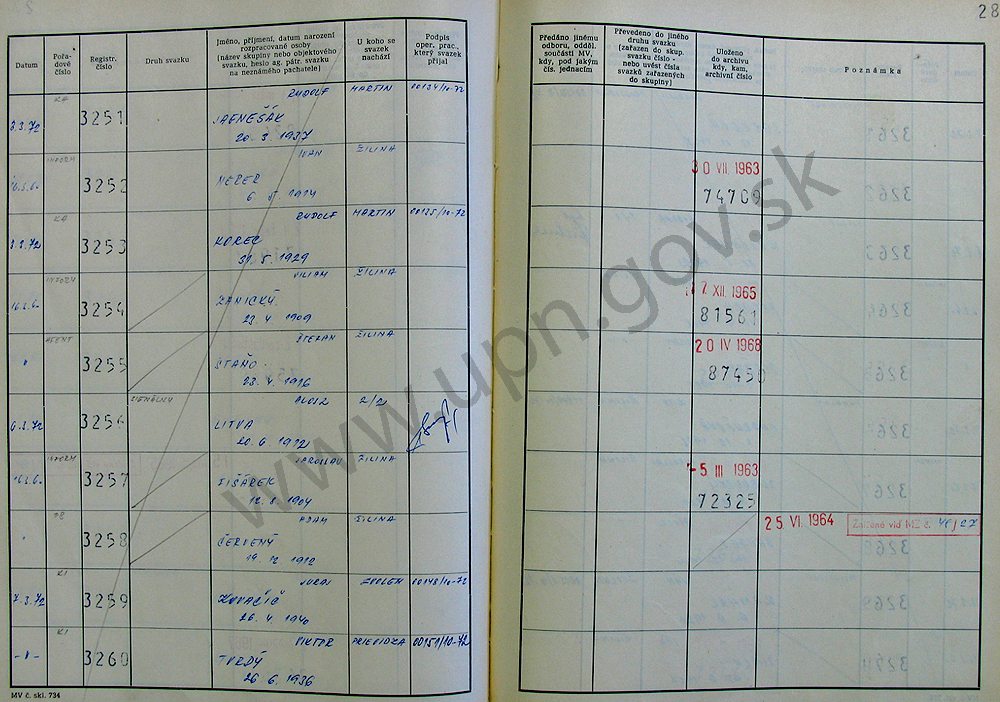 28
Datum
Pořa-
dové
číslo
Registr.
číslo
Druh svazku
Jméno, příjmení, datum narození
rozpracované osoby
(název skupiny nebo objektového
svazku, heslo ag. pátr. svazku
na neznámého pachatele)
U koho se
svazek
nachází
Podpis
oper. prac.,
který svazek
přijal
Předáno jinému
odboru, odděl.
součásti MV,
kdy, pod jakým
čís. jednacím
Převedeno do jiného
druhu svazku
(zařazen do skup.
svazku číslo -
nebo uvést čísla
svazků zařazených
do skupiny)
Uloženo
do archivu
kdy, kam,
archivní číslo
Poznámka
RUDOLF MARTIN 00134/10-72
3.3.72 3251 JABNEŠÁK
20. 3. 1937
IVAN ŽILINA
3252
6 1914
30 VII. 1963
74709
KA RUDOLF MARTIN 00135/10-72
3.3.72 3253 KOREC
31. 5. 1929
VILIAM ŽILINA
3254 ŽANICKÝ
28. 4 1909
17 XII. 1965
81561
AGENT ŠTEFAN ŽILINA
3255 STAŇO
23. 4. 1916
20 IV 1968
87450
ALOJZ 2/2
6.3.72 3256 LITVA
20. 6. 1922
JAROSLAV ŽILINA
3257 FIŠÁREK
12. 8. 1904
-5. III 1963
72325
ADAM ŽILINA
3258 ČERVENÝ
19. 12 1912
25 VI. 1964
KI JURAJ ZVOLEN 00148/10-72
7.3.72 3259 KOVAČIČ
26. 4 1940
KI VIKTOR PRIEVIDZA 00151/10-72
-"- 3260 TVRDÝ
26 6. 1936
MV č. skl. 734
www.upn.gov.sk